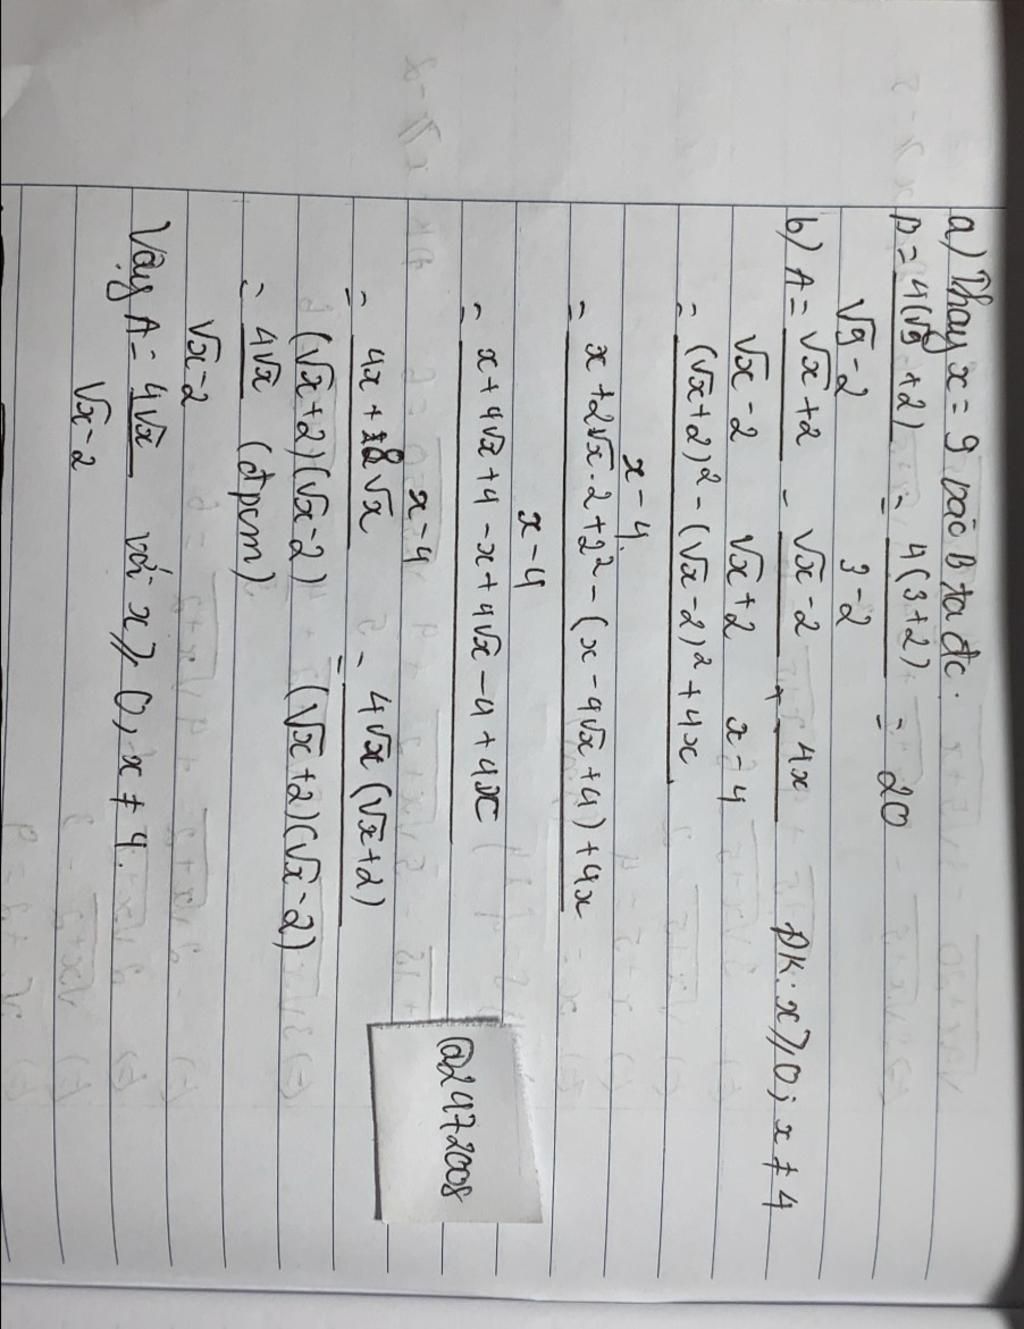 a) Thay x = 9 vào B ta đc.
B = 4(√9 + 2) / √9 - 2 = 4(3+2) / 3-2 = 20
b) A = √x + 2 / √x - 2 - √x - 2 / √x + 2 + 4x / x - 4 ĐK: x ≥ 0; x ≠ 4
= (√x + 2)² - (√x - 2)² + 4x / x - 4.
= x + 2√x . 2 + 2² - (x - 4√x + 4) + 4x / x - 4
= x + 4√x + 4 - x + 4√x - 4 + 4x / x - 4
= 4x + 8√x / (√x + 2)(√x - 2) = 4√x (√x + 2) / (√x + 2)(√x - 2)
= 4√x / √x - 2 (đpcm)
Vậy A = 4√x / √x - 2 với x ≥ 0, x ≠ 4.
@2472008